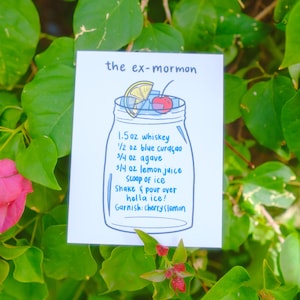 the ex-mormon
1.5 oz whiskey
1/2 oz blue curaçao
3/4 oz agave
3/4 oz lemon juice
scoop of ice
Shake & pour over
hella ice!
Garnish: cherry & lemon